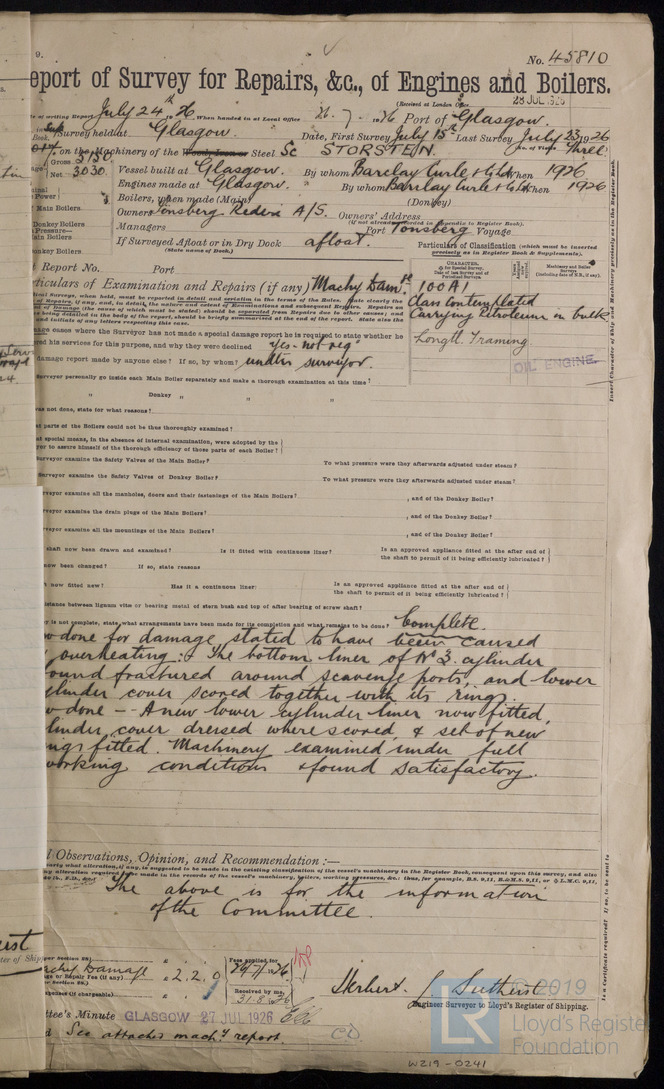 9.
No. 45810
eport of Survey for Repairs, &c., of Engines and Boilers.
(Received at London Office 28 JUL 1926
of writing Report July 24th 26 When handed in at Local Office 26-7-1926 Port of Glasgow.
Survey held at Glasgow. Date, First Survey July 15th Last Survey July 23 1926
on the Machinery of the Wood, Iron or Steel Sc STORSTEN. Three
Gross 5130 Vessel built at Glasgow. By whom Barclay Curle & Co Ld When 1926
Net 3030 Engines made at Glasgow. By whom Barclay Curle & Co Ld When 1926
Boilers, when made (Main) (Donkey)
Owners Tonsberg Rederi A/S. Owners' Address
(if not already recorded in Appendix to Register Book).
Managers Port Tonsberg Voyage
If Surveyed Afloat or in Dry Dock afloat.
(State name of Dock.)
Particulars of Classification (which must be inserted
precisely as in Register Book & Supplements).
t Report No. Port
rticulars of Examination and Repairs (if any) Machy Dam.
100A1
Class Contemplated
Carrying Petroleum in bulk
Longtl. Framing
OIL ENGINE.
age cases where the Surveyor has not made a special damage report he is required to state whether he
ered his services for this purpose, and why they were declined yes - not reqd
damage report made by anyone else? If so, by whom? underwr surveyor.
Surveyor personally go inside each Main Boiler separately and make a thorough examination at this time?
" Donkey " " "
was not done, state for what reasons?
t parts of the Boilers could not be thus thoroughly examined?
at special means, in the absence of internal examination, were adopted by the
yor to assure himself of the thorough efficiency of those parts of each Boiler?
Surveyor examine the Safety Valves of the Main Boiler? To what pressure were they afterwards adjusted under steam?
Surveyor examine the Safety Valves of Donkey Boiler? To what pressure were they afterwards adjusted under steam?
rveyor examine all the manholes, doors and their fastenings of the Main Boilers? , and of the Donkey Boiler?
rveyor examine the drain plugs of the Main Boilers? , and of the Donkey Boiler?
rveyor examine all the mountings of the Main Boilers? , and of the Donkey Boiler?
shaft now been drawn and examined? Is it fitted with continuous liner? Is an approved appliance fitted at the after end of
the shaft to permit of it being efficiently lubricated?
now been changed? If so, state reasons
t now fitted new? Has it a continuous liner: Is an approved appliance fitted at the after end of
the shaft to permit of it being efficiently lubricated?
istance between lignum vitæ or bearing metal of stern bush and top of after bearing of screw shaft?
ey is not complete, state what arrangements have been made for its completion and what remains to be done? Complete
w done for damage stated to have been caused
overheating:- The bottom liner of No 3. cylinder
ound fractured around scavenge ports, and lower
ylinder cover scored together with its rings.
w done -- A new lower cylinder liner now fitted,
linder cover dressed where scored, & set of new
ngs fitted. Machinery examined under full
working conditions & found satisfactory.
l Observations, Opinion, and Recommendation :—
The above is for the information
of the Committee.
Machy Damage
ge or Repair Fee (if any) £ 2.2.0
Fees applied for
24/7/1926
Received by me,
31-8-1926
Herbert J Suttill
Engineer Surveyor to Lloyd's Register of Shipping.
ttee's Minute GLASGOW 27 JUL 1926
See attached machy report.
© 2019
Lloyd's Register
Foundation
W219-0241